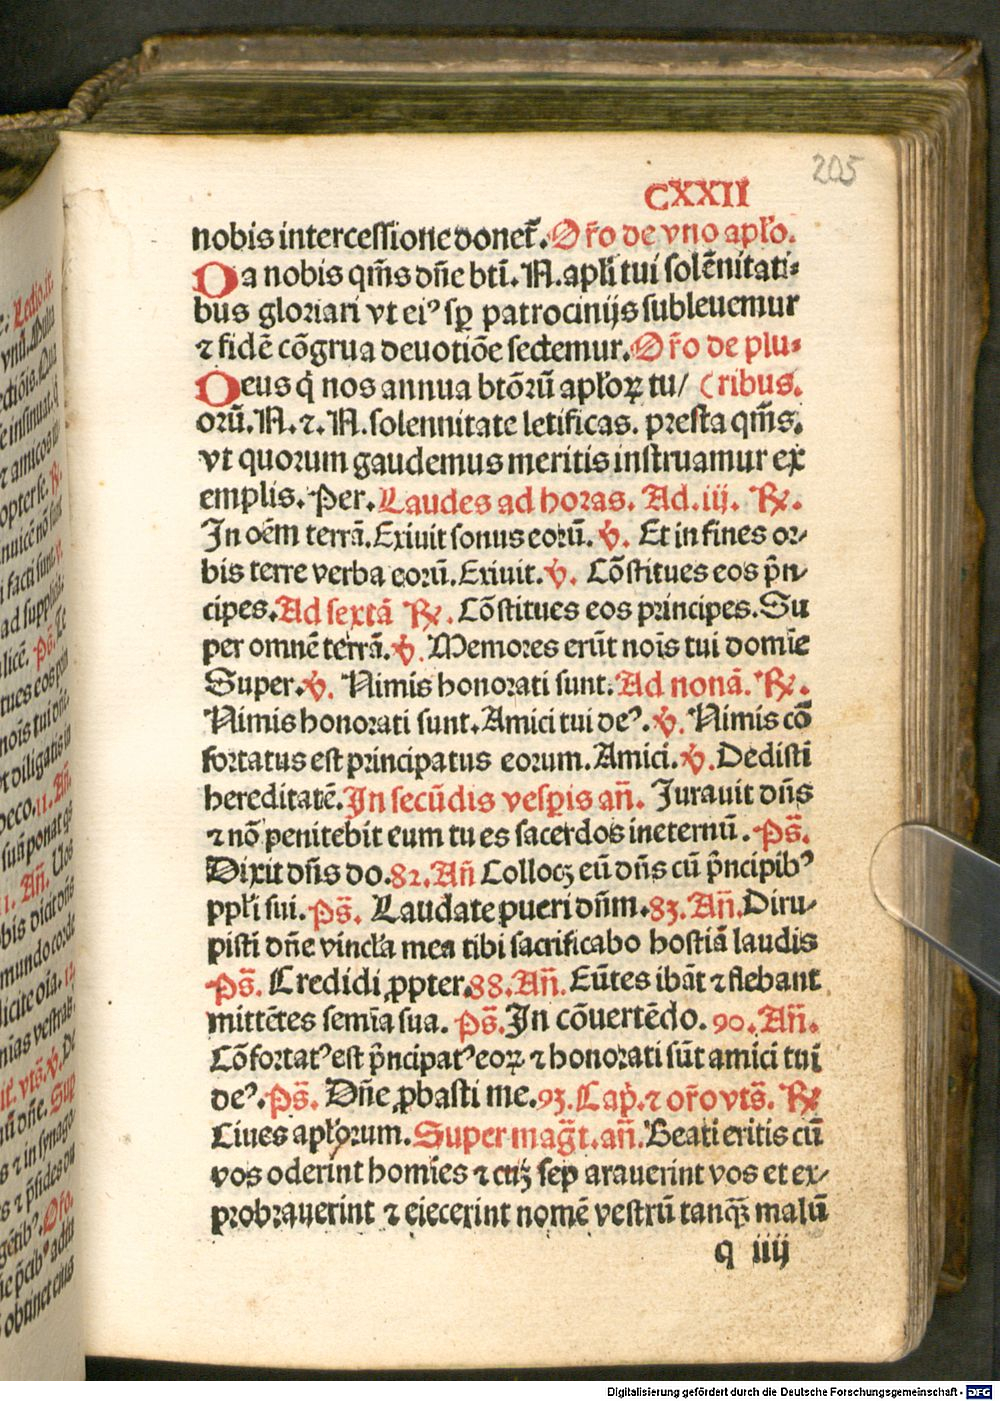 205
CXXII
nobis intercessione donet᷑. Or̃o de vno apl'o.
Da nobis qm̃s dñe btĩ. N. apl'i tui solẽnitati⸗
bus gloriari vt eiꝰ sꝑ patrocinijs subleuemur
⁊ fidẽ cõgrua deuotiõe sectemur. Or̃o de plu⸗
Deus q̃ nos annua btõrũ apl'oꝝ tu/ (ribus.
orũ. N. ⁊. N. solennitate letificas. presta qm̃s.
vt quorum gaudemus meritis instruamur ex
emplis. Per. Laudes ad horas. Ad. iij. ℞.
In oẽm terrã. Exiuit sonus eorũ. ℣. Et in fines or⸗
bis terre verba eorũ. Exiuit. ℣. Cõstitues eos p̃n⸗
cipes. Ad sextã ℞. Cõstitues eos principes. Su
per omnẽ terrã. ℣. Memores erũt noĩs tui domĩe
Super. ℣. Nimis honorati sunt. Ad nonã. ℞.
Nimis honorati sunt. Amici tui deꝰ. ℣. Nimis cõ
fortatus est principatus eorum. Amici. ℣. Dedisti
hereditatẽ. In secũdis vesꝑis añ. Iurauit dñs
⁊ nõ penitebit eum tu es sacerdos ineternũ. Ps̃.
Dixit dñs do. 82. Añ Collocꝫ eũ dñs cũ p̃ncipibꝰ
ppl'i sui. Ps̃. Laudate pueri dñm. 83. Añ. Diru⸗
pisti dñe vincl'a mea tibi sacrificabo hostiã laudis
Ps̃. Credidi ꝓpter. 88. Añ. Eũtes ibãt ⁊ flebant
mittẽtes semĩa sua. Ps̃. In cõuertẽdo. 90. Añ.
Cõfortatꝰ est p̃ncipatꝰ eoꝝ ⁊ honorati sũt amici tui
deꝰ. Ps̃. Dñe ꝓbasti me. 93. Cap̃. ⁊ or̃o vts̃. ℞
Ciues apl'orum. Super mag̃t. añ. Beati eritis cũ
vos oderint homĩes ⁊ cũ sep arauerint vos et ex⸗
probrauerint ⁊ eiecerint nomẽ vestrũ tanqꝫ̃ malũ
q iiij
Digitalisierung gefördert durch die Deutsche Forschungsgemeinschaft - DFG